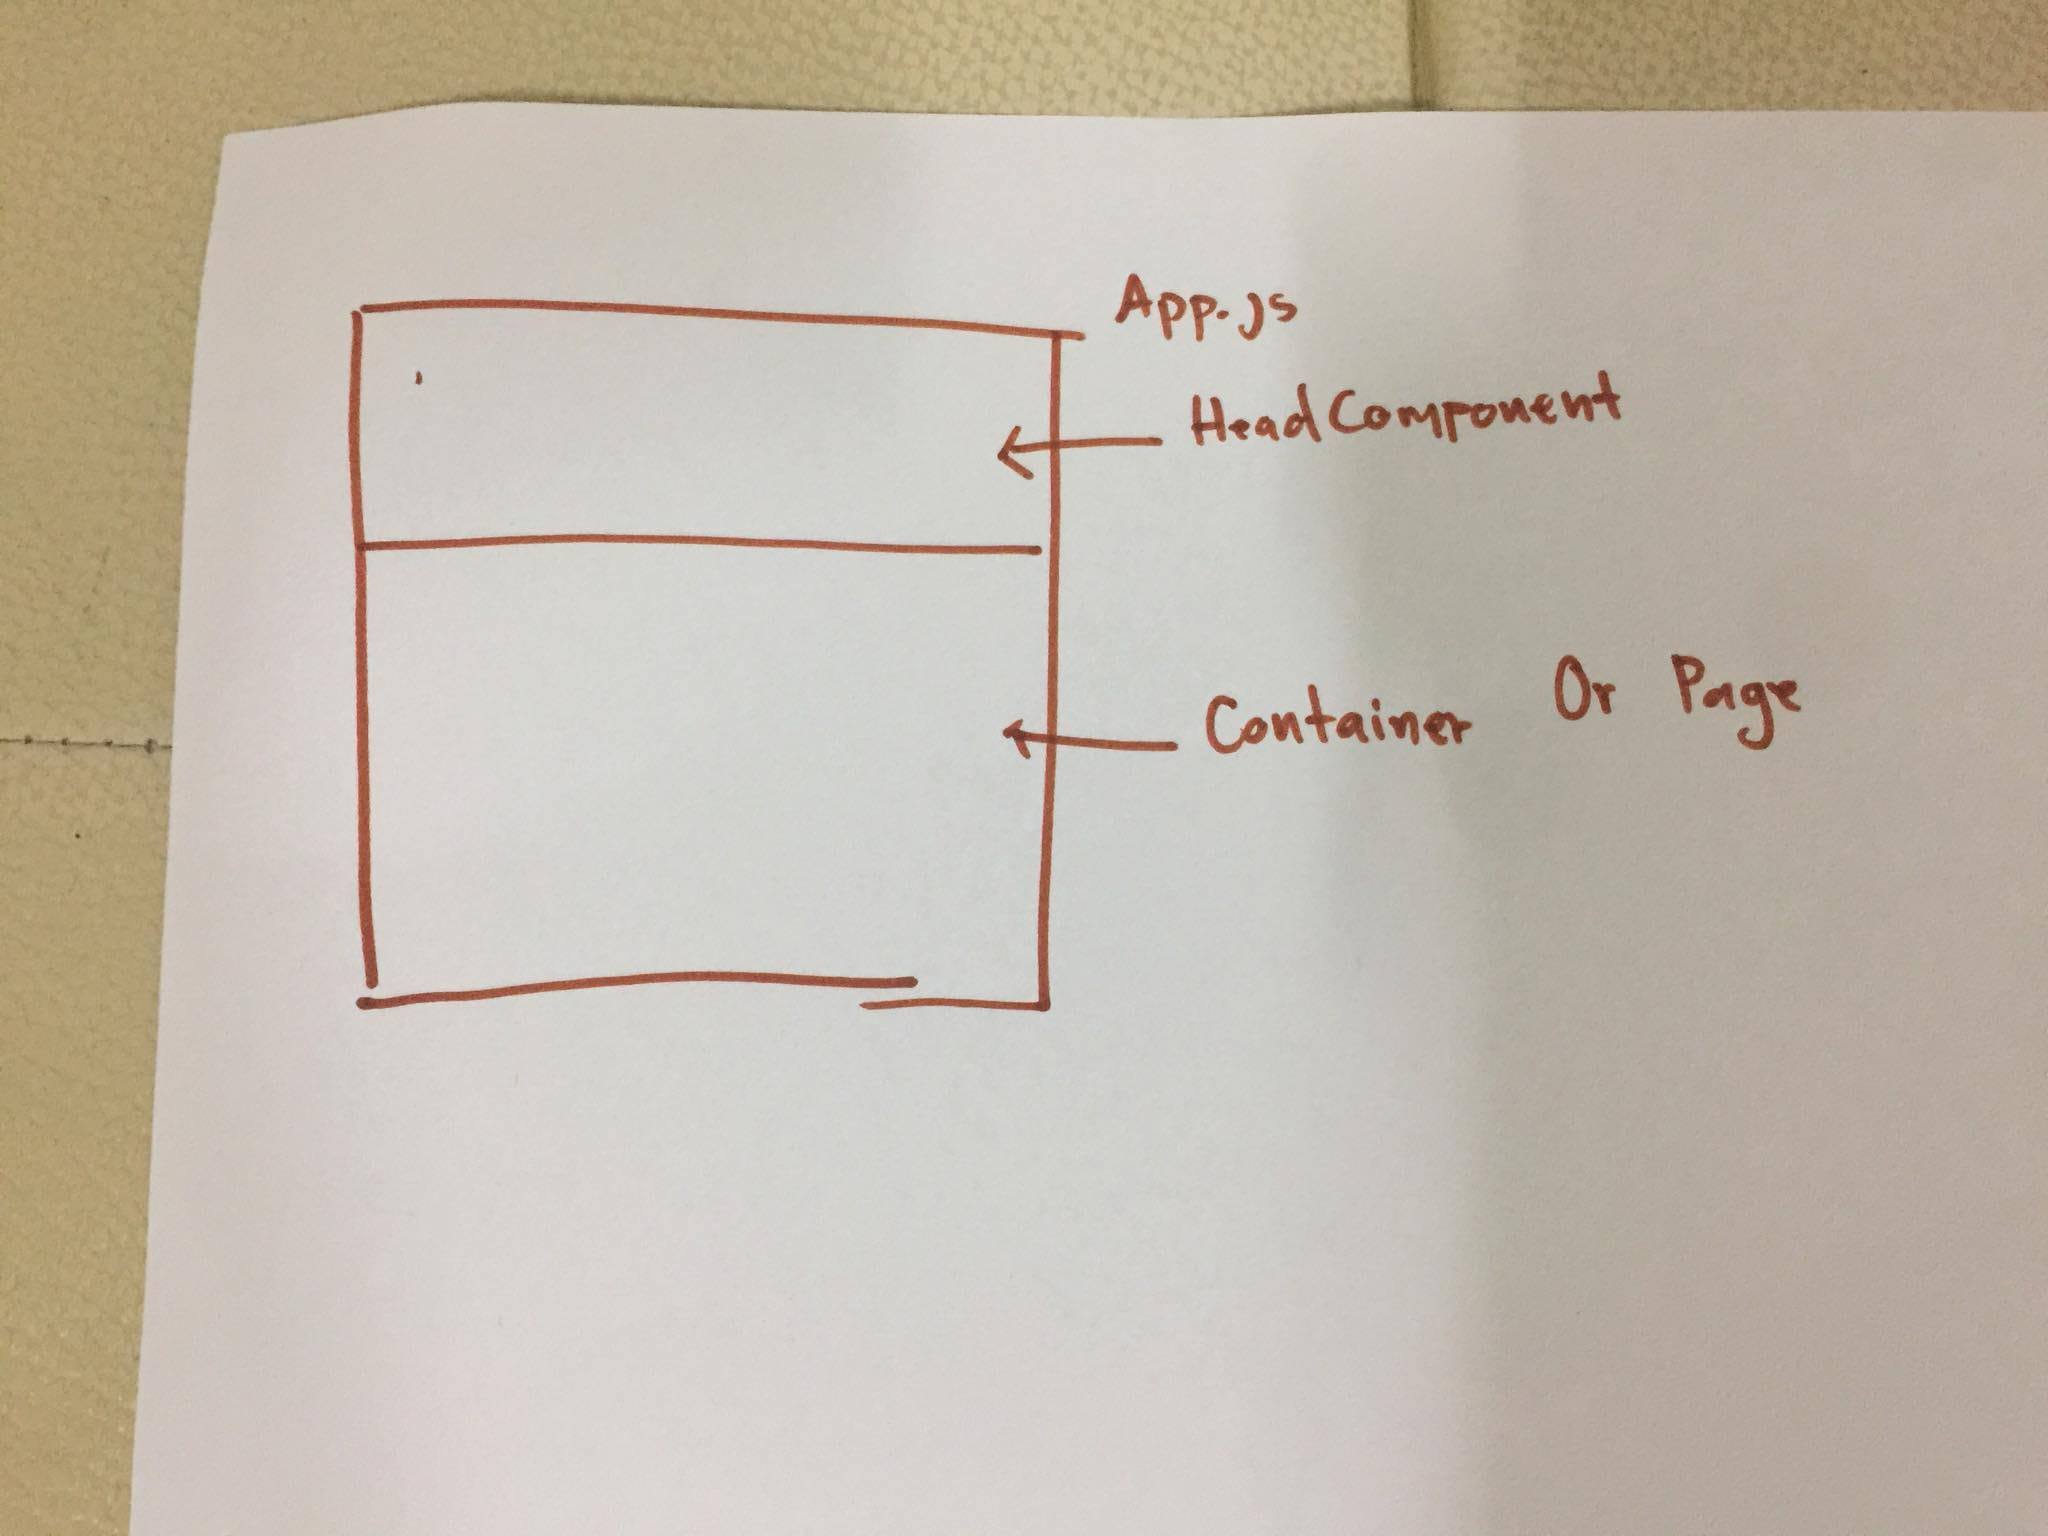 App.js
HeadComponent
Container Or Page